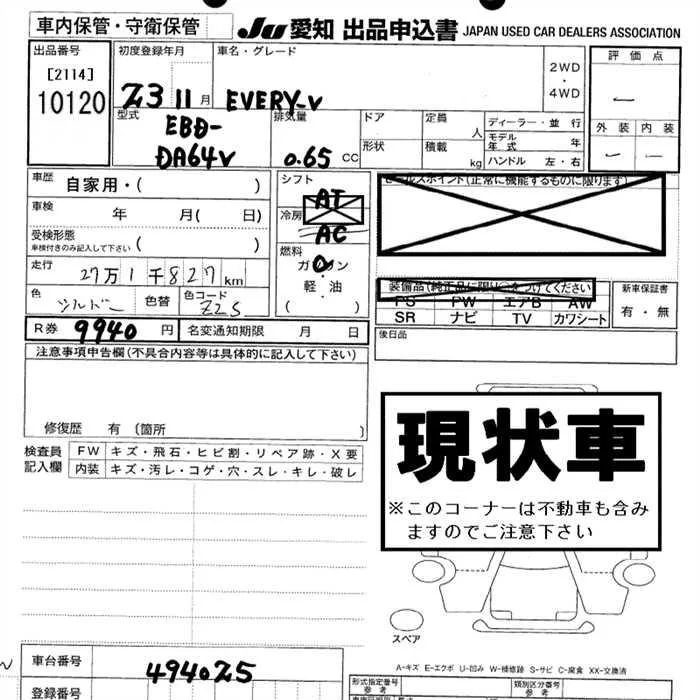 車内保管・守衛保管 JU 愛知 出品申込書 JAPAN USED CAR DEALERS ASSOCIATION
出品番号 初度登録年月 車名・グレード 2WD ・ 4WD 評価点
[2114]
10120 Z3 11月 EVERY-V ー
型式 排気量 ドア 定員 人 ディーラー・並行
EBD- モデル年式 年 外装 内装
DA64V 0.65 CC 形状 積載 kg ハンドル 左・右 ー ー
車歴 自家用・( ) シフト AT セールスポイント(正常に機能するものに限ります)
車検 年 月( 日) 冷房 AC
受検形態
車検付きのみ記入して下さい ( ) 燃料 ガソリン
走行 27万1千827km ・軽・油 装備品(純正品に限り○をつけてください) 新車保証書
色 シルバー 色替 色コード Z2S ( ) PS PW エアB AW 有・無
SR ナビ TV カワシート
R券 9940 円 名変通知期限 月 日 後日品
注意事項申告欄(不具合内容等は具体的に記入して下さい)
修復歴 有 (箇所 )
現状車
※このコーナーは不動車も含み
ますのでご注意下さい
検査員 FW キズ・飛石・ヒビ割・リペア跡・X要
記入欄 内装 キズ・汚レ・コゲ・穴・スレ・キレ・破レ
スペア
A-キズ E-エクボ U-凹み W-補修跡 S-サビ C-腐食 XX-交換済
車台番号 494025 形式指定番号 参考 類別区分番号 参考
登録番号